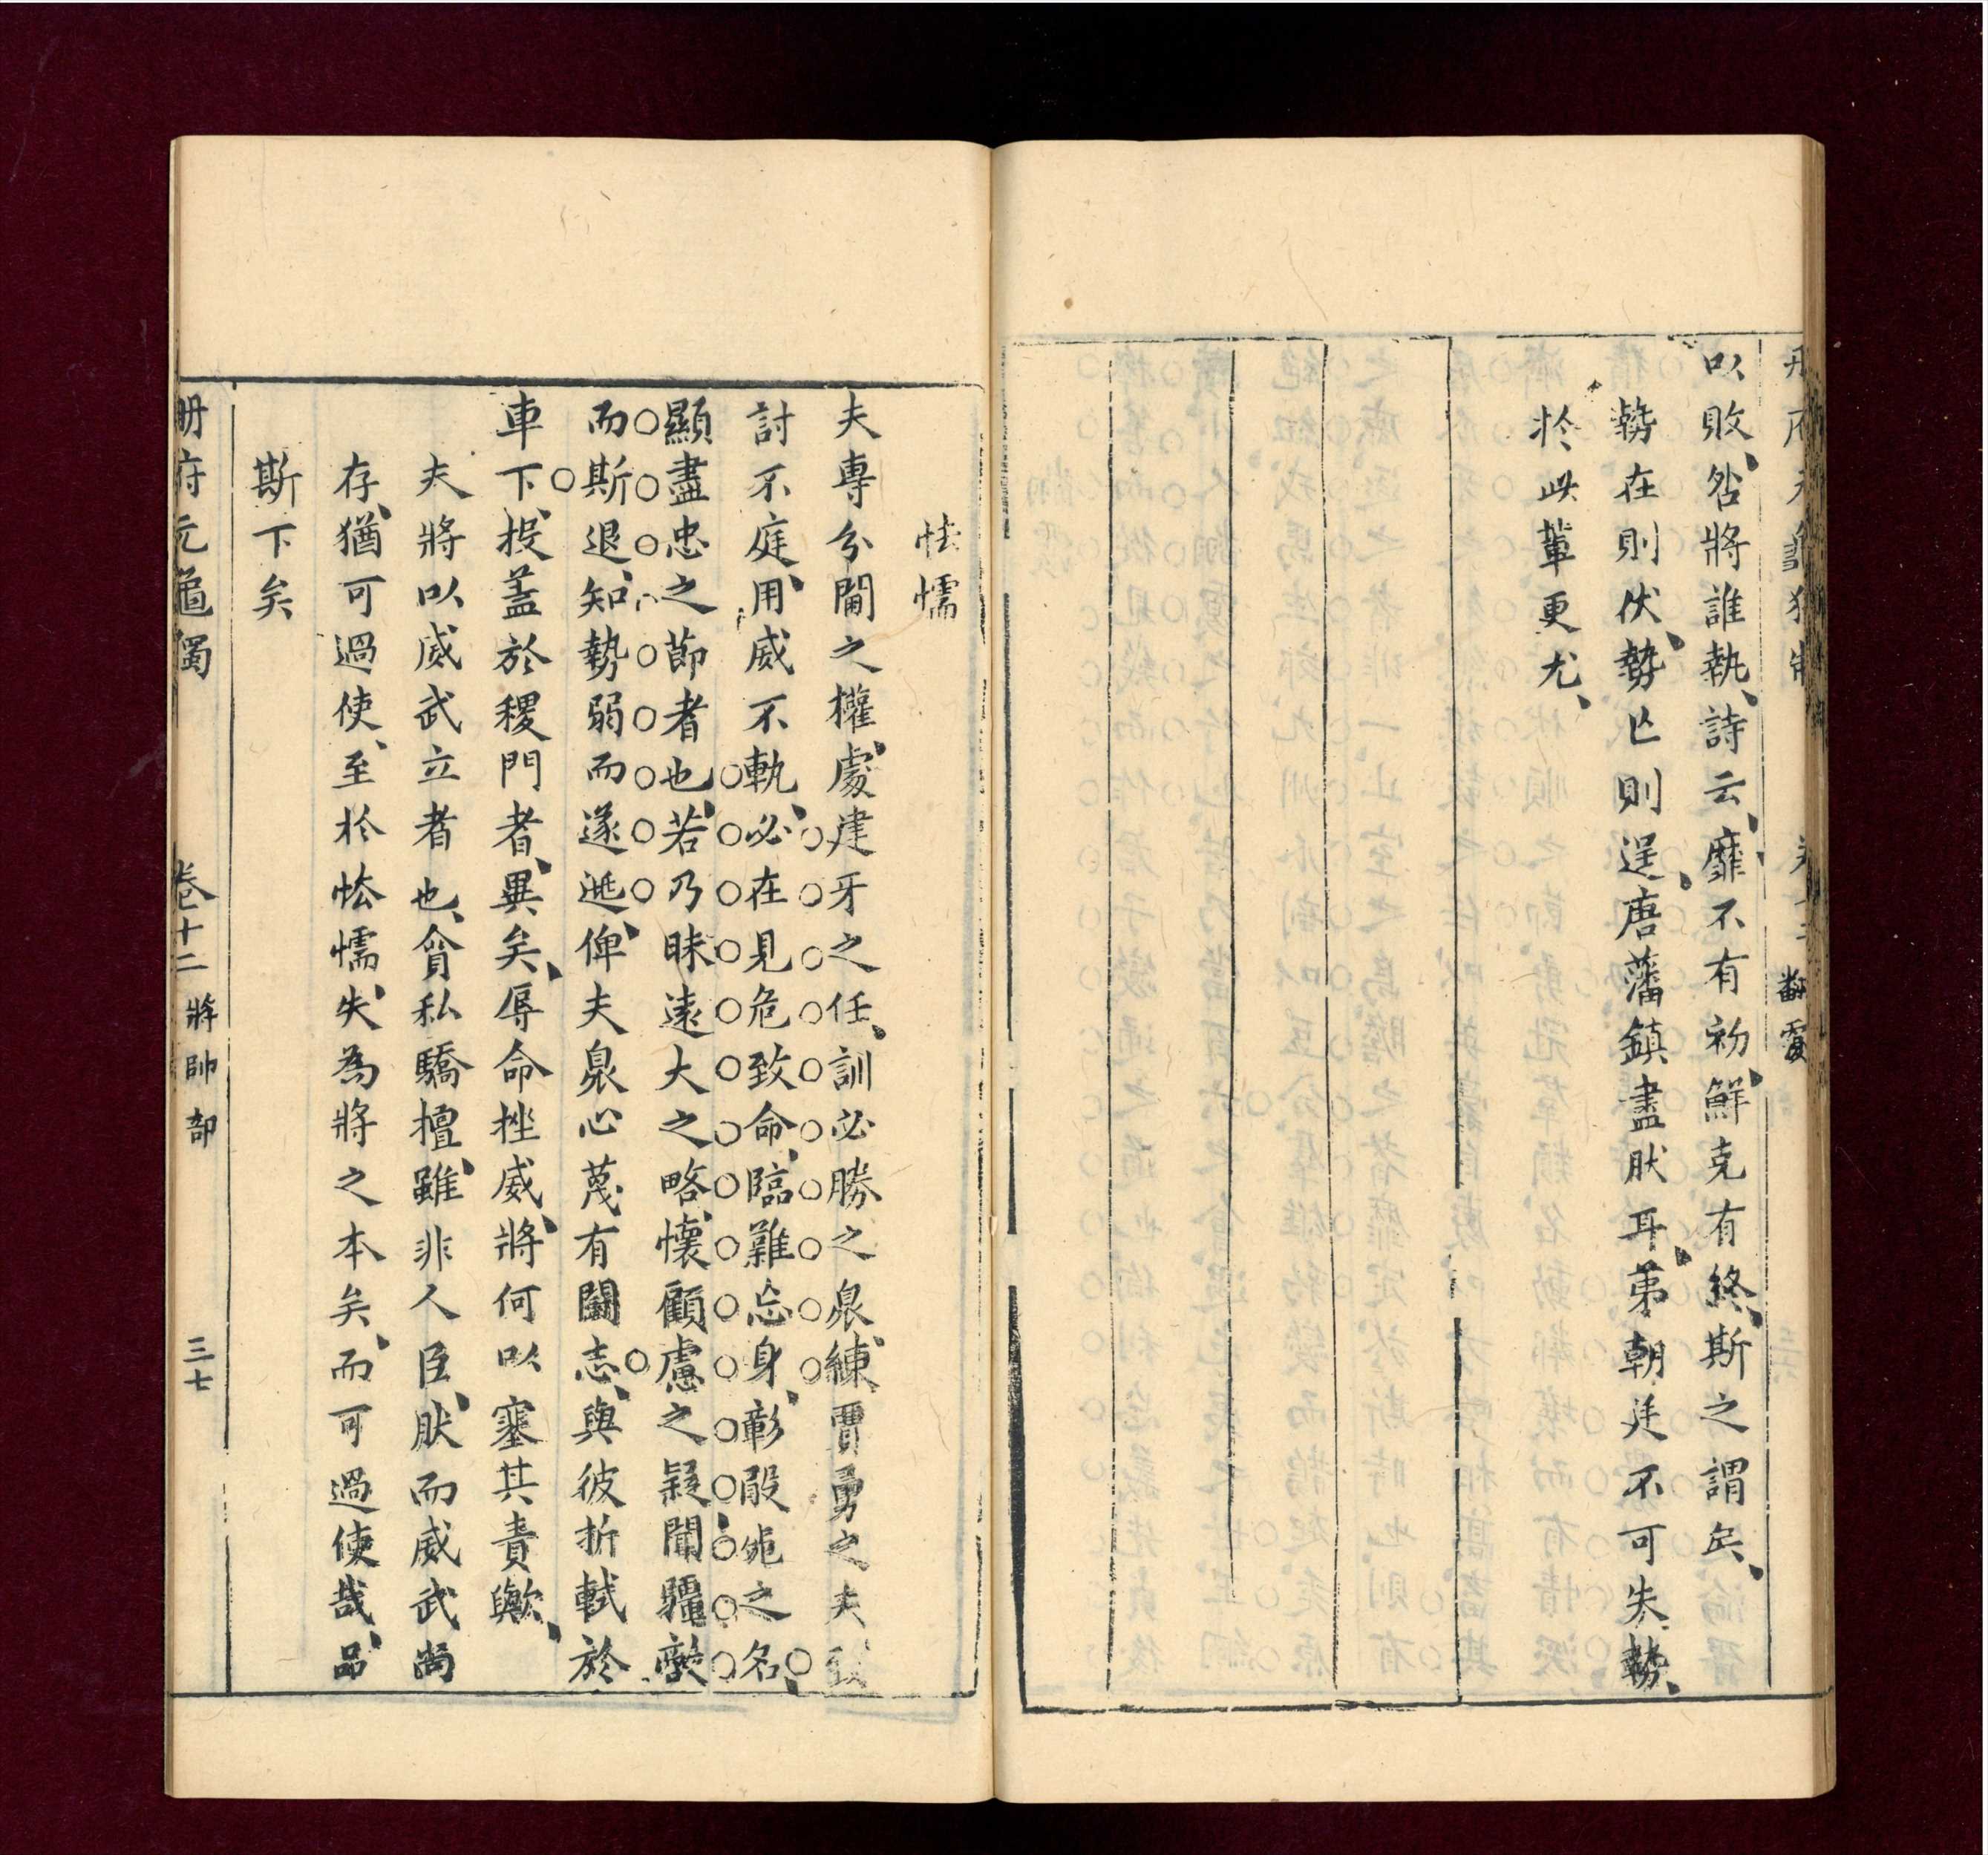 以敗咎將誰執詩云靡不有初鮮克有終斯之謂矣
勢在則伏勢亡則逞唐藩鎮盡肰耳苐朝廷不可失勢
於此輩更尤
怯懦
夫專分閫之權處建牙之任訓必勝之衆練賈勇之夫
討不庭用威不軌必在見危致命臨難忘身彰殿邦之名
顯盡忠之節者也若乃昧遠大之略懷顧慮之疑聞彊敵
而斯退知勢弱而遂逃俾夫衆心蔑有鬭志與彼折軾於
車下投蓋於稷門者異矣辱命挫威將何以塞其責歟
夫將以威武立者也貪私驕擅雖非人臣肰而威武尚
存猶可過使至於怯懦失為將之本矣而可過使哉品
斯下矣
册府元龜獨
卷十二
將帥部
三七